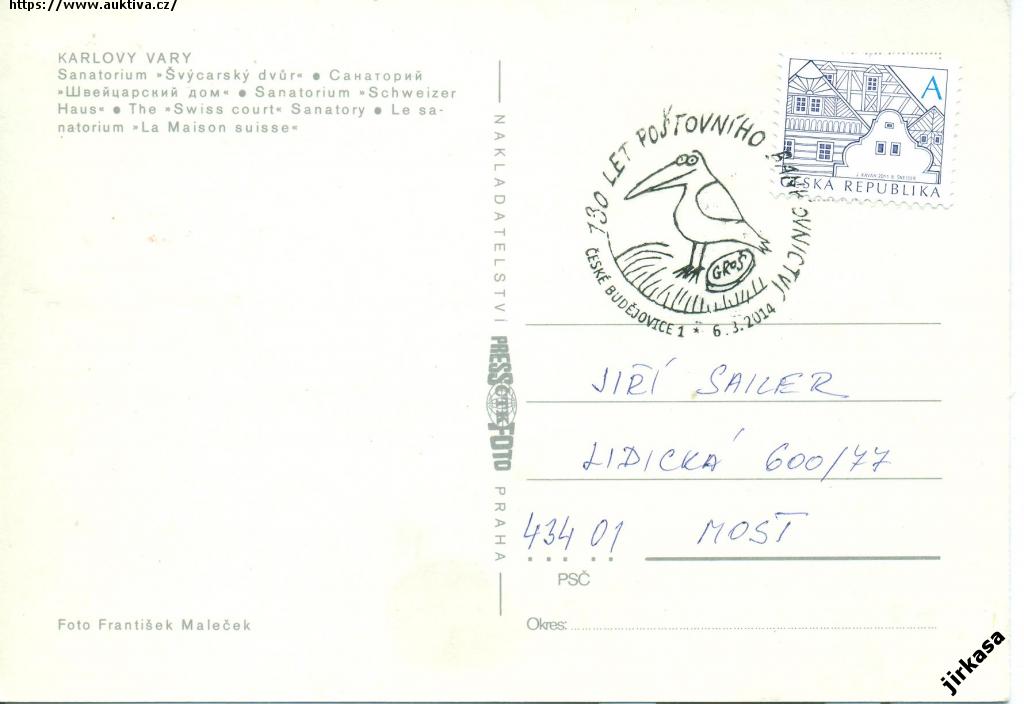 https://www.auktiva.cz/
KARLOVY VARY
Sanatorium »Švýcarský dvůr« ● Санаторий
»Швейцарский дом« ● Sanatorium »Schweizer
Haus« ● The »Swiss court« Sanatory ● Le sa-
natorium »La Maison suisse«
Foto František Maleček
NAKLADATELSTVÍ
PRESSFOTO
ČTK
PRAHA
130 LET POŠTOVNÍHO BANKOVNICTVÍ
GROŠ
ČESKÉ BUDĚJOVICE 1 * 6.3.2014
A
J. KAVAN 2011 B. ŠNEIDER
ČESKÁ REPUBLIKA
JIŘÍ SAILER
LIDICKÁ 600/77
434 01 MOST
PSČ
Okres:
jirkasa